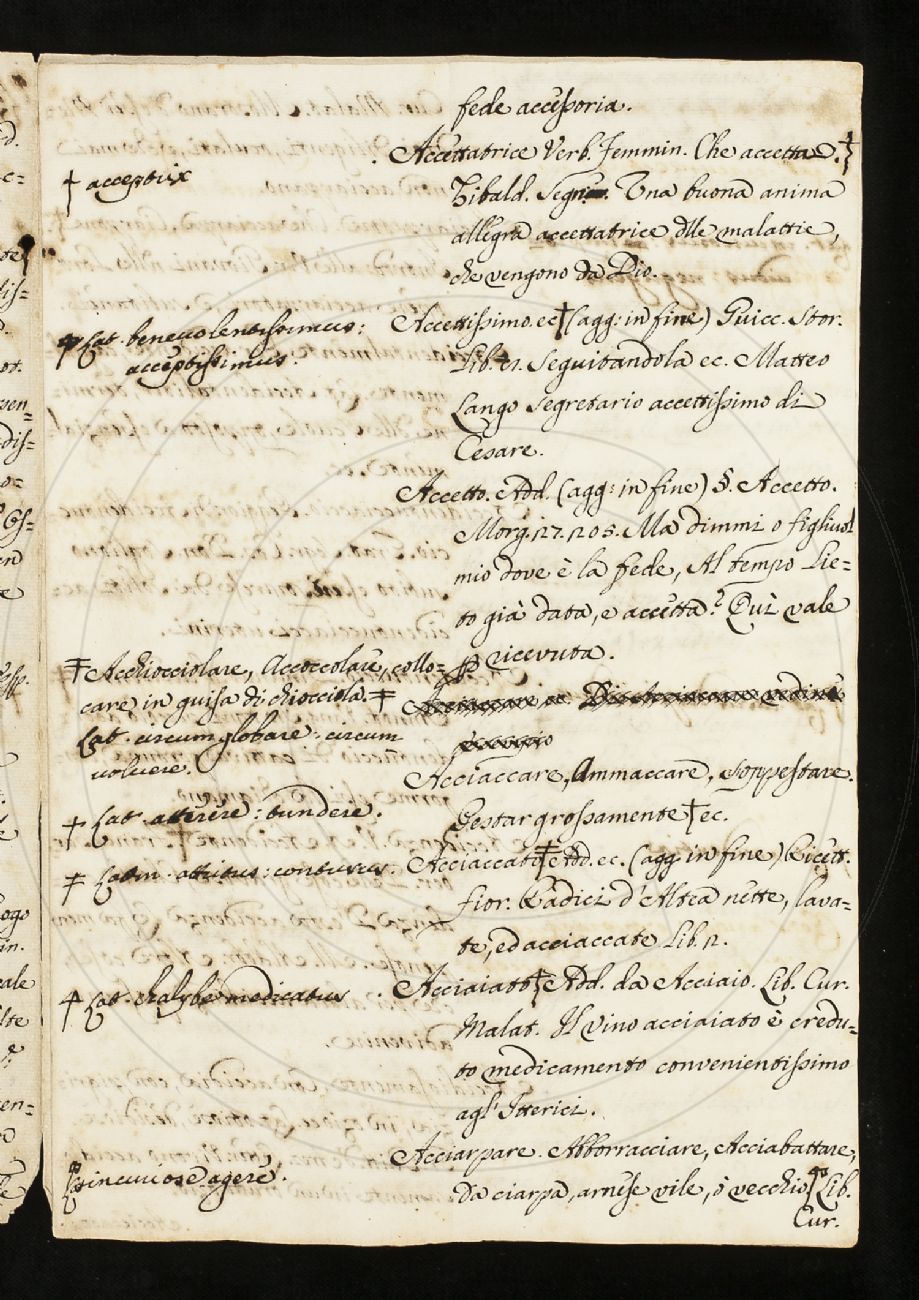 fede accessoria.
Accettatrice Verb. Femmin. Che accetta.
† acceptrix
Tibald. Segn. Una buona anima
allegra accettatrice dlle malattie,
che vengono da Dio.
Accettissimo. ec † (agg: in fine) Guicc. Stor.
Lat. benevolentissimus:
acceptissimus.
Lib. 11. Seguitandola ec. Matteo
Lango Segretario accettissimo di
Cesare.
Accetto. Add. (agg: in fine) §. Accetto.
Morg. 27. 205. Ma dimmi o figliuol
mio dove è la fede, Al tempo lie=
to già data, e accetta? Qui vale
ꝑ ricevuta.
‡ Acchiocciolare, Accoccolare, collo=
care in guisa di chiocciola ‡
Lat. circumglobare: circum
volvere.
Acciaccare, Ammaccare, Soppestare.
Pestar grossamente † ec.
† Lat. atterere: tundere.
Acciaccato ‡ Add. ec. (agg: in fine) Ricett.
‡ Latin. attritus: contusus.
Fior. Radici d'Altea nette, lava=
te, ed acciaccate Lib. 12.
Acciaiato ‡ Add. da Acciaio. Lib. Cur.
‡ Lat. chalybe medicatus
Malat. Il vino acciaiato è credu=
to medicamento convenientissimo
agl' Itterici.
Acciarpare. Abborracciare, Acciabattare,
incuriose agere.
Da ciarpa, arnese vile, o vecchio Lib.
Cur.